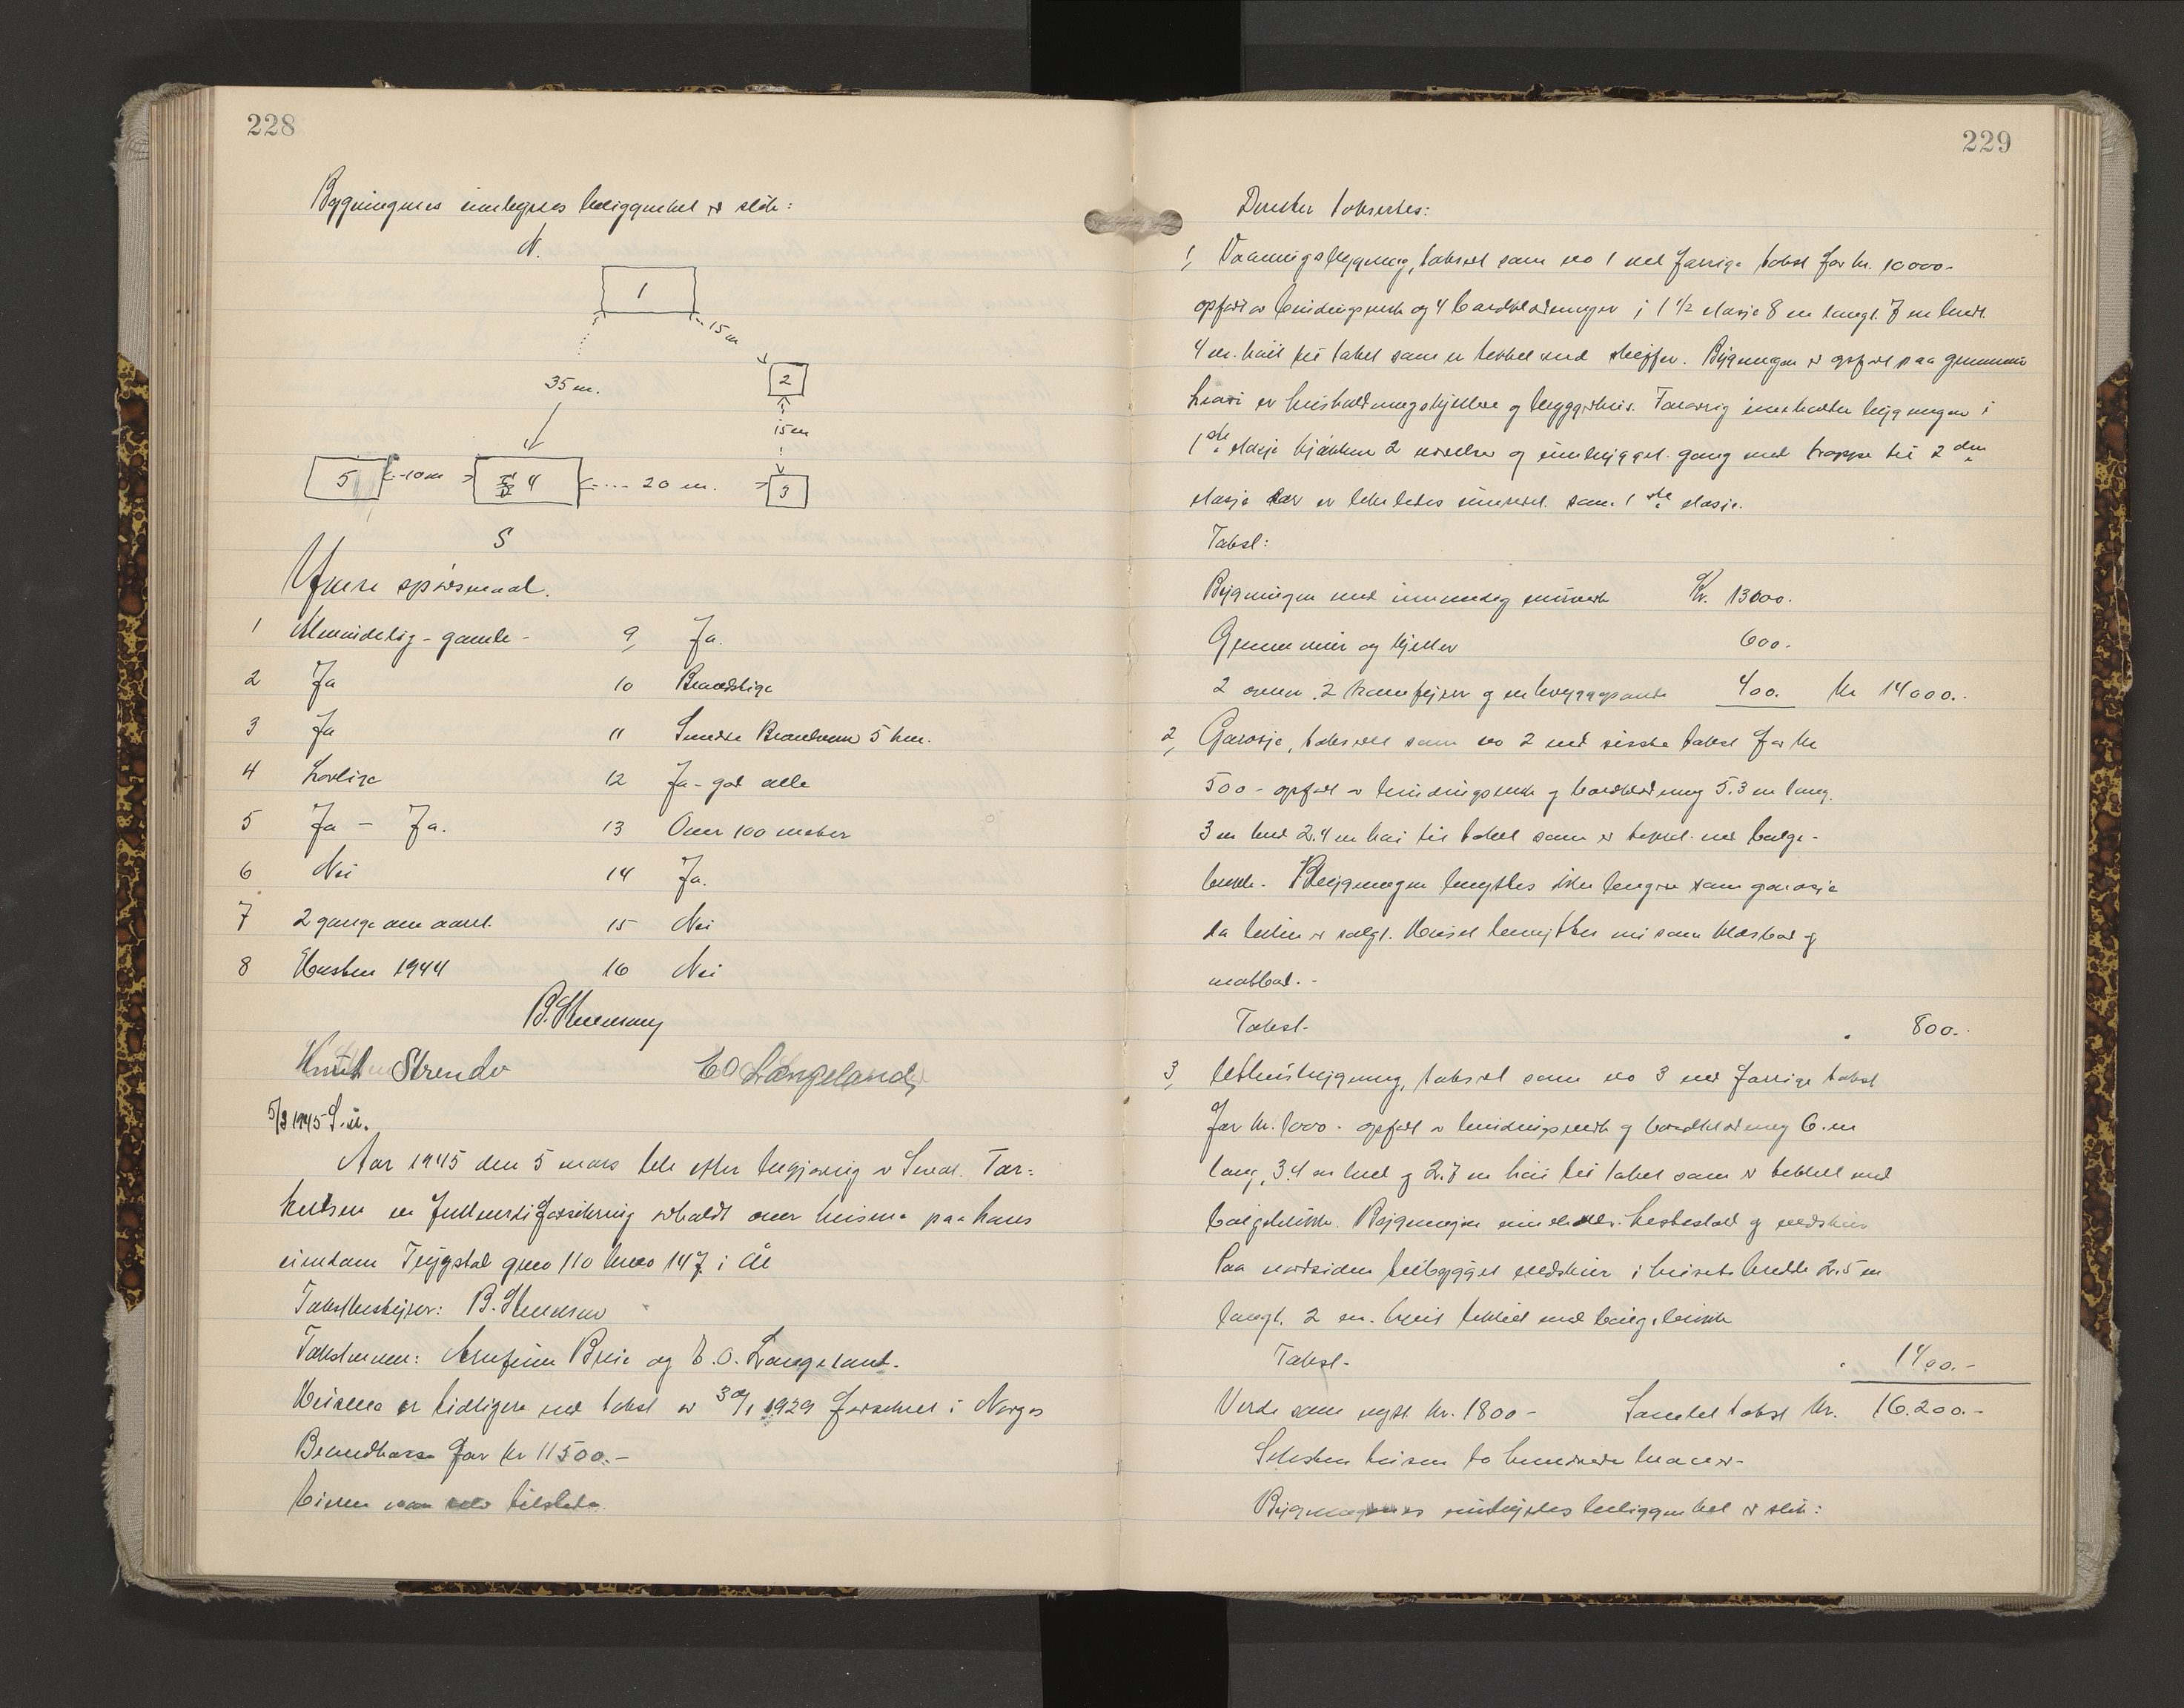 228
Bygningenes innbyrdes beliggenhet er slik:
N.
1
15 m
35 m.
2
15 m
5
10 m
4
20 m.
3
S
Ymse spørsmaal.
1 Almindelig - gamle - 9, Ja.
2 Ja 10 Brandstige
3 Ja 11 5 km.
4 Lovlige 12 Ja - god alle
5 Ja - Ja. 13 Over 100 meter
6 Nei 14 Ja.
7 2 gange om aaret. 15 Nei
8 Høsten 1944 16 Nei
B. Thommesen
Knut Strendo E O Langeland
5/3 1945
Aar 1945 den 5 mars ble efter begjæring av Tor-
kelsen en fullverdiforsikring avholdt over husene paa hans
eiendom Trygstad gno 110 bno 147 i
Takstbestyrer: B. Thommesen
Takstmenn: Arnfinn Brie og E. O. Langeland.
Husene er tidligere ved takst av 30/1 1929 forsikret i Norges
Brandkasse for kr 11500.-
Eieren var selv tilstede.
229
Derefter takseertes:
1, Vaaningsbygning, taksert som no 1 ved forrige takst for kr. 10000.-
opført av bindingsverk og 4 bordkledninger i 1 1/2 etasje 8 m langt. 7 m bredt
4 m. høit til taket som er tekket med skiffer. Bygningen er opført paa grunnmur
hvori er husholdningskjeller og bryggerhus. Forøvrig inneholder bygningen i
1ste etasje kjøkken 2 værelser og innbygget gang med trappe til 2den
etasje der er likeledes innredet som 1ste etasje.
Takst:
Bygningen med innvendig murverk Kr. 13000.-
Grunnmur og kjeller 600.-
2 ovner 2 komfyrer og en bryggepanne 400. kr 14000.-
2, Garasje, taksert som no 2 ved siste takst for kr
500 - opført av bindingsverk og bordkledning 5.3 m lang.
3 m bred 2.4 m høi til taket som er tekket med bølge-
blikk. Bygningen benyttes ikke lenger som garasje
da bilen er solgt. Huset benyttes nu som klesbod og
matbod. -
Takst - " 800.-
3, Uthusbygning, taksert som no 3 ved forrige takst
for kr. 1000.- opført av bindingsverk og bordkledning 6. m
lang, 3.4 m bred og 2.7 m høi til taket som er tekket med
bølgeblikk. Bygningen inneholder hestestald og vedskur
Paa nordsiden tilbygget vedskur i husets bredde 2.5 m
langt. 2 m. høit tekket med bølgeblikk
Takst - " 1400.-
Verdi som nytt kr. 1800 - Samlet takst kr. 16.200.-
Seksten tusen to hundrede kroner -
Bygningenes innbyrdes beliggenhet er slik: